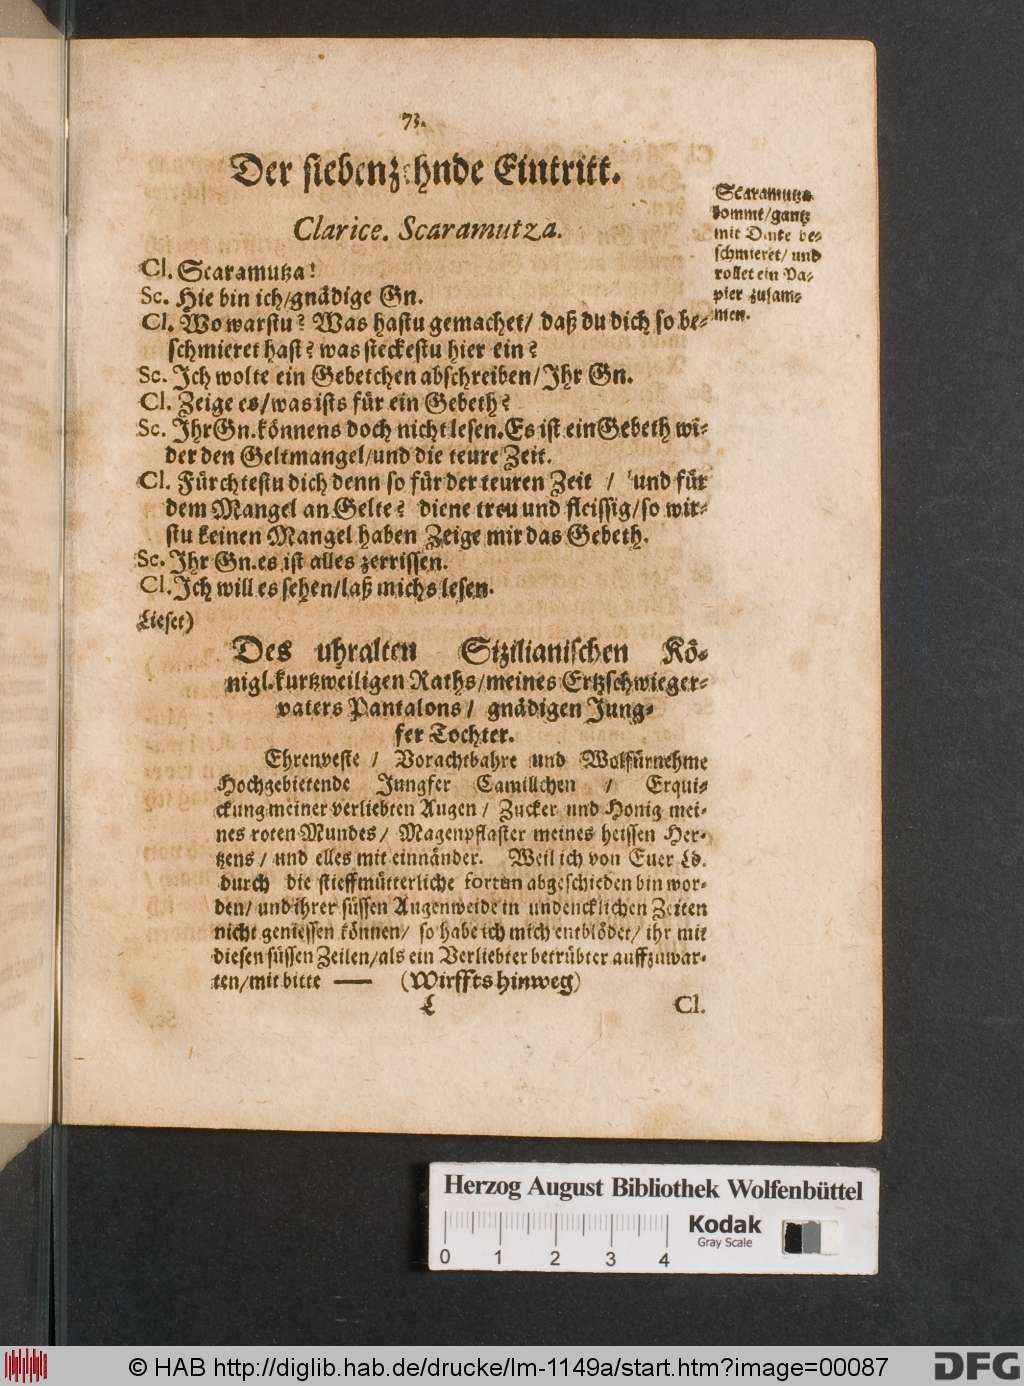 73.
Der siebenzehnde Eintritt.
Clarice. Scaramutza.
Scaramutza
kommt/gantz
mit Dinte be-
schmieret/ und
rollet ein Pa-
pier zusam-
men.
Cl. Scaramutza!
Sc. Hie bin ich/gnädige Gn.
Cl. Wo warstu? Was hastu gemachet/ daß du dich so be-
schmieret hast? was steckestu hier ein?
Sc. Ich wolte ein Gebetchen abschreiben/Ihr Gn.
Cl. Zeige es/was ists für ein Gebeth?
Sc. Ihr Gn. könnens doch nicht lesen. Es ist ein Gebeth wi-
der den Geltmangel/und die teure Zeit.
Cl. Fürchtestu dich denn so für der teuren Zeit / und für
dem Mangel an Gelte? diene treu und fleissig/so wir-
stu keinen Mangel haben Zeige mir das Gebeth.
Sc. Ihr Gn. es ist alles zerrissen.
Cl. Ich will es sehen/laß michs lesen.
Lieset)
Des uhralten Sizilianischen Kö-
nigl. kurtzweiligen Raths/meines Ertzschwieger-
vaters Pantalons/ gnädigen Jung-
fer Tochter.
Ehrenveste / Vorachtbahre und Wolfürnehme
Hochgebietende Jungfer Camillchen / Erqui-
ckung meiner verliebten Augen / Zucker und Honig mei-
nes roten Mundes/ Magenpflaster meines heissen Her-
tzens/ und elles mit einnänder. Weil ich von Euer Ld.
durch die stieffmütterliche fortun abgeschieden bin wor-
den/ und ihrer süssen Augenweide in undencklichen Zeiten
nicht geniessen können/ so habe ich mich entblödet/ ihr mit
diesen süssen Zeilen/als ein Verliebter betrübter auffzuwar-
ten/mit bitte — (Wirffts hinweg)
L Cl.
Herzog August Bibliothek Wolfenbüttel
Kodak
Gray Scale
0 1 2 3 4
© HAB http://diglib.hab.de/drucke/lm-1149a/start.htm?image=00087
DFG